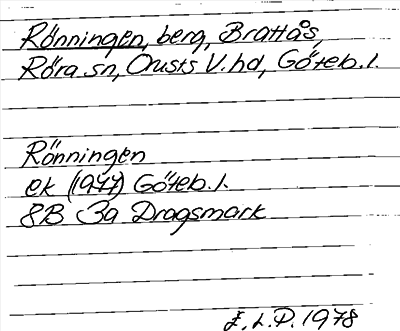 Rönningen, berg, Brattås,
Röra sn, Orusts V. hd, Göteb. l.
Rönningen
ek (1977) Göteb. l.
8B 3a Dragsmark
E. L. P. 1978